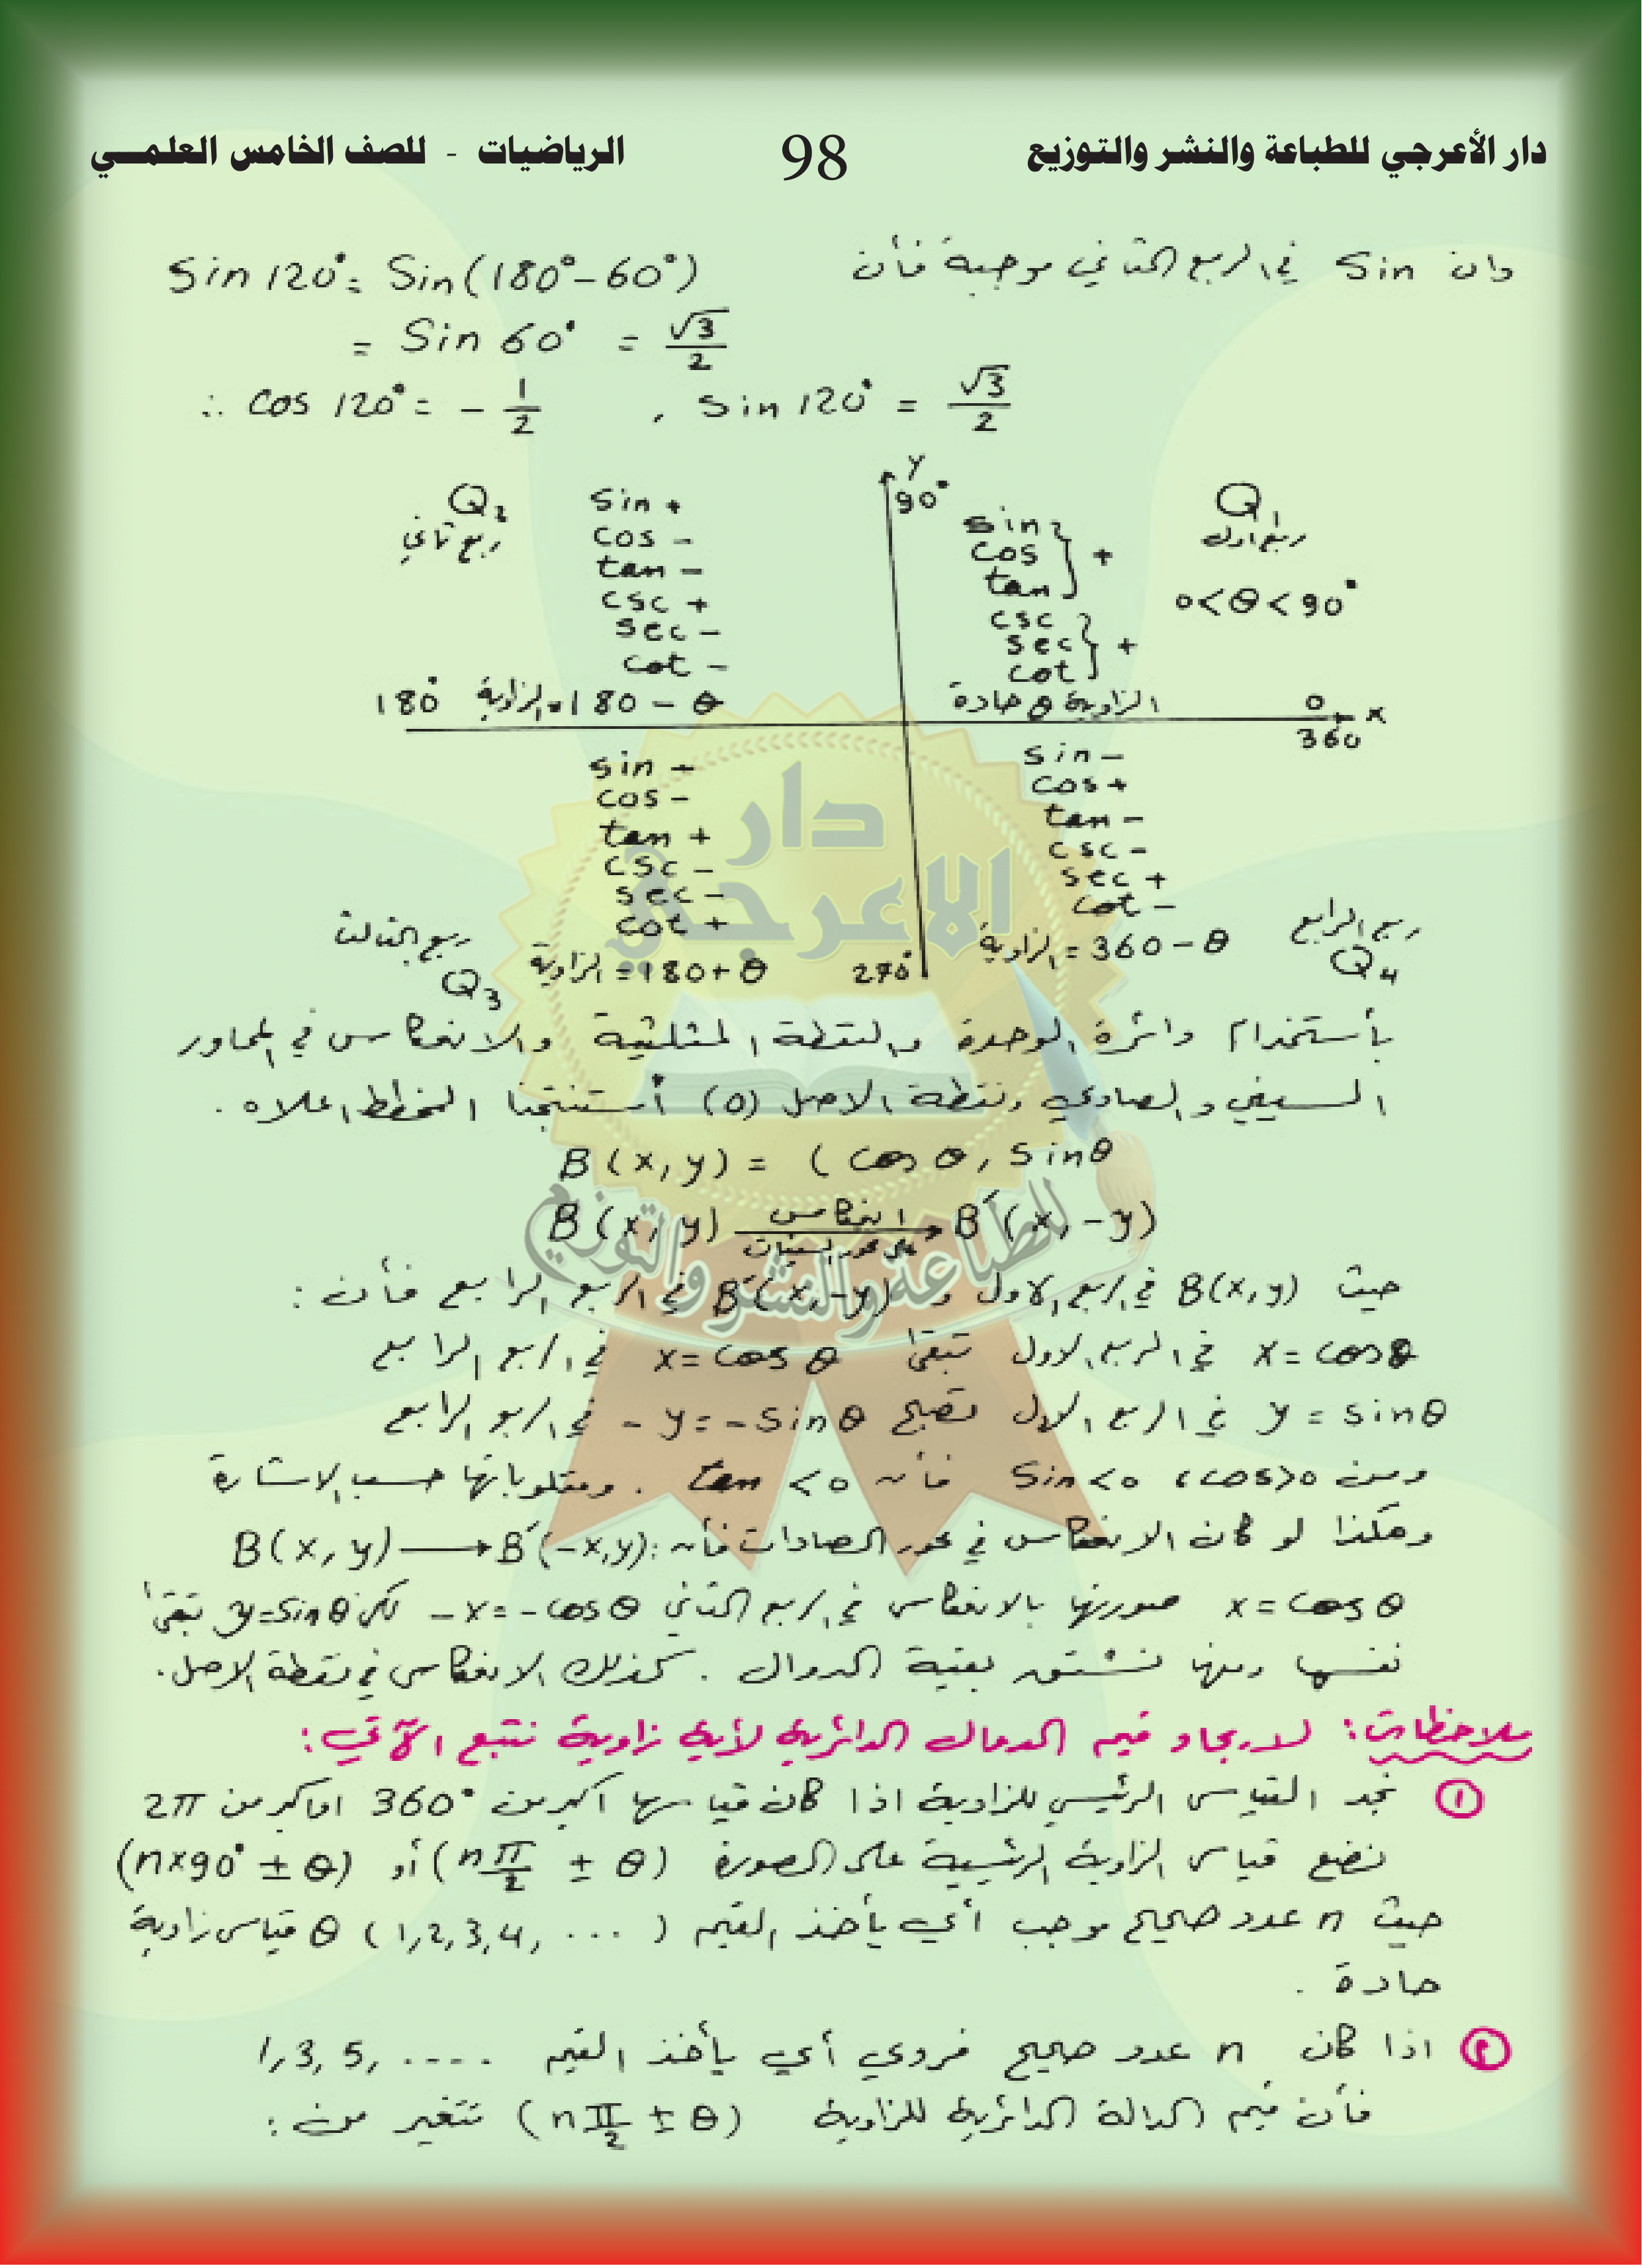 دار الأعرجي للطباعة والنشر والتوزيع 98 الرياضيات - للصف الخامس العلمي
وان Sin في الربع الثاني موجبة فأن Sin 120° = Sin(180° - 60°)
= Sin 60° = √3/2
∴ cos 120° = - 1/2 , sin 120° = √3/2
Y
90°
Q1
ربع اول
0 < θ < 90°
sin
cos
tan
+
csc
sec
cot
+
الزاوية θ حادة
0
360
x
Q2
ربع ثاني
sin +
cos -
tan -
csc +
sec -
cot -
180° الزاوية = 180 - θ
sin -
cos -
tan +
csc -
sec -
cot +
ربع الثالث
Q3
الزاوية = 180 + θ
270°
sin -
cos +
tan -
csc -
sec +
cot -
الزاوية = 360 - θ
ربع الرابع
Q4
بأستخدام دائرة الوحدة والنقطة المثلثية والانعكاس في المحاور
السيني والصادي ونقطة الاصل (0) أستنتجنا المخطط اعلاه .
B(x, y) = (cos θ, sinθ
B(x, y) انعكاس على محور السينات → B′(x, -y)
حيث B(x, y) في الربع الاول و B′(x, -y) في الربع الرابع فأن :
x = cosθ في الربع الاول تبقى x = cos θ في الربع الرابع
y = sinθ في الربع الاول تصبح -y = -sinθ في الربع الرابع
ومن cos>0 ، Sin<0 فأن tan <0 . ومقلوباتها حسب الاشارة
وهكذا لو كان الانعكاس في محور الصادات فأن : B(x, y) → B′(-x, y)
x = cos θ صورتها بالانعكاس في الربع الثاني -x = -cosθ لكن y = sinθ تبقى
نفسها ومنها نشتق بقية الدوال . كذلك الانعكاس في نقطة الاصل.
ملاحظات : لايجاد قيم الدوال الدائرية لأية زاوية نتبع الآتي :
① نجد القياس الرئيسي للزاوية اذا كان قياسها اكبر من 360° او اكبر من 2π
نضع قياس الزاوية الرئيسية على الصورة (nπ/2 ± θ) أو (n×90° ± θ)
حيث n عدد صحيح موجب أي يأخذ القيم (1,2,3,4, ... ) θ قياس زاوية
حادة .
② اذا كان n عدد صحيح فردي أي يأخذ القيم 1, 3, 5, ....
فأن قيم الدالة الدائرية للزاوية (nπ/2 ± θ) تتغير من :
دار
الاعرجي
للطباعة والنشر والتوزيع